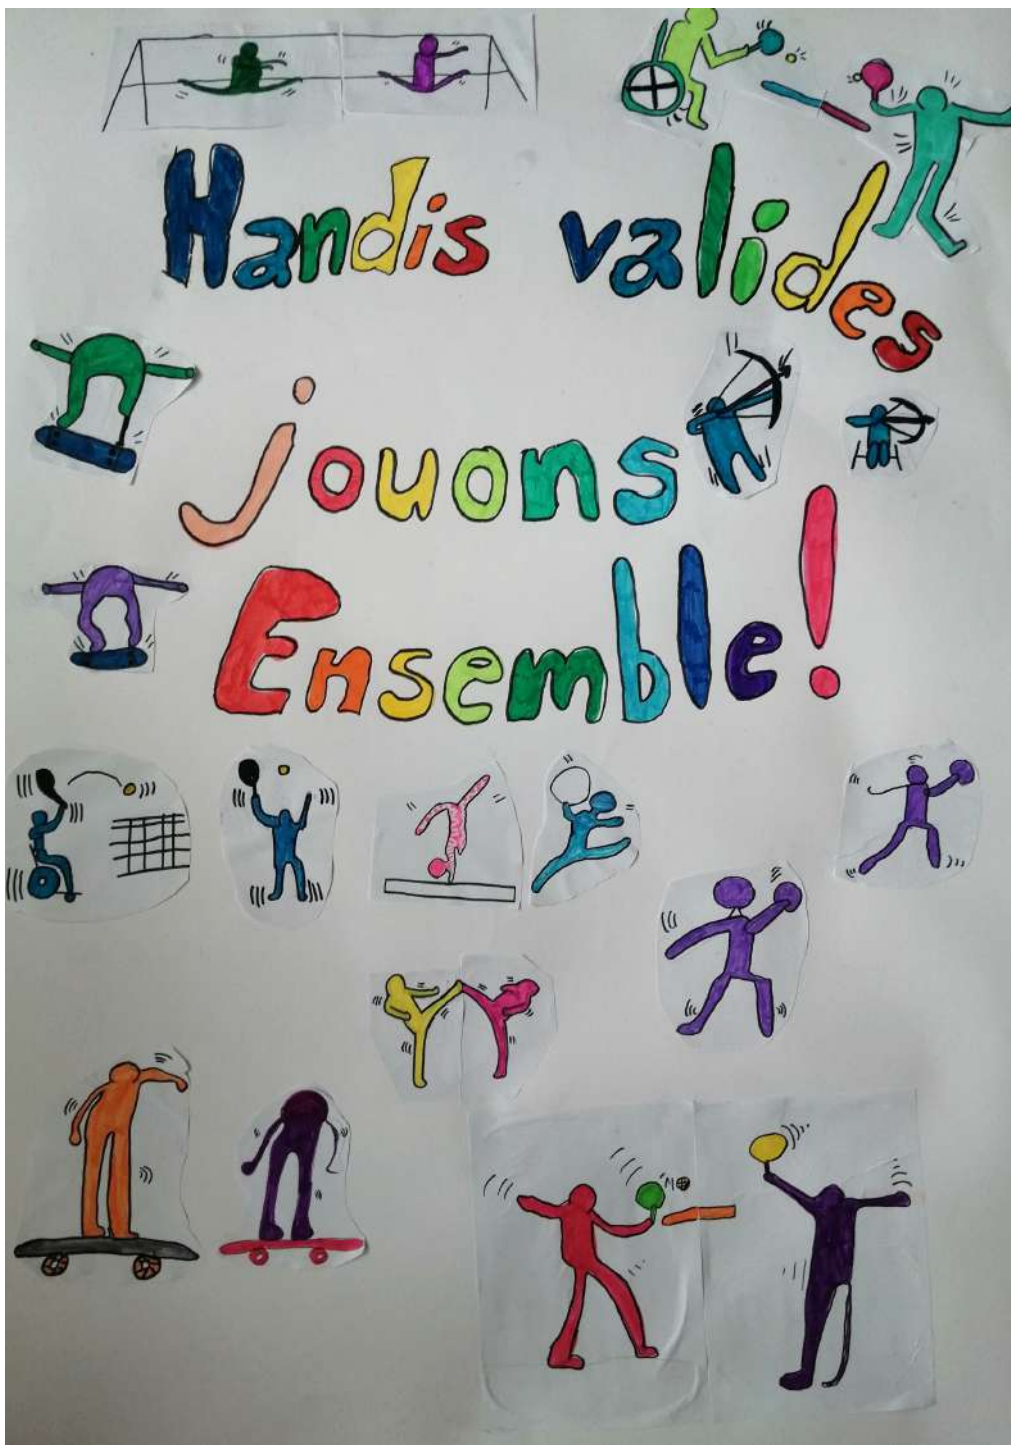 Handis valides
jouons
Ensemble!